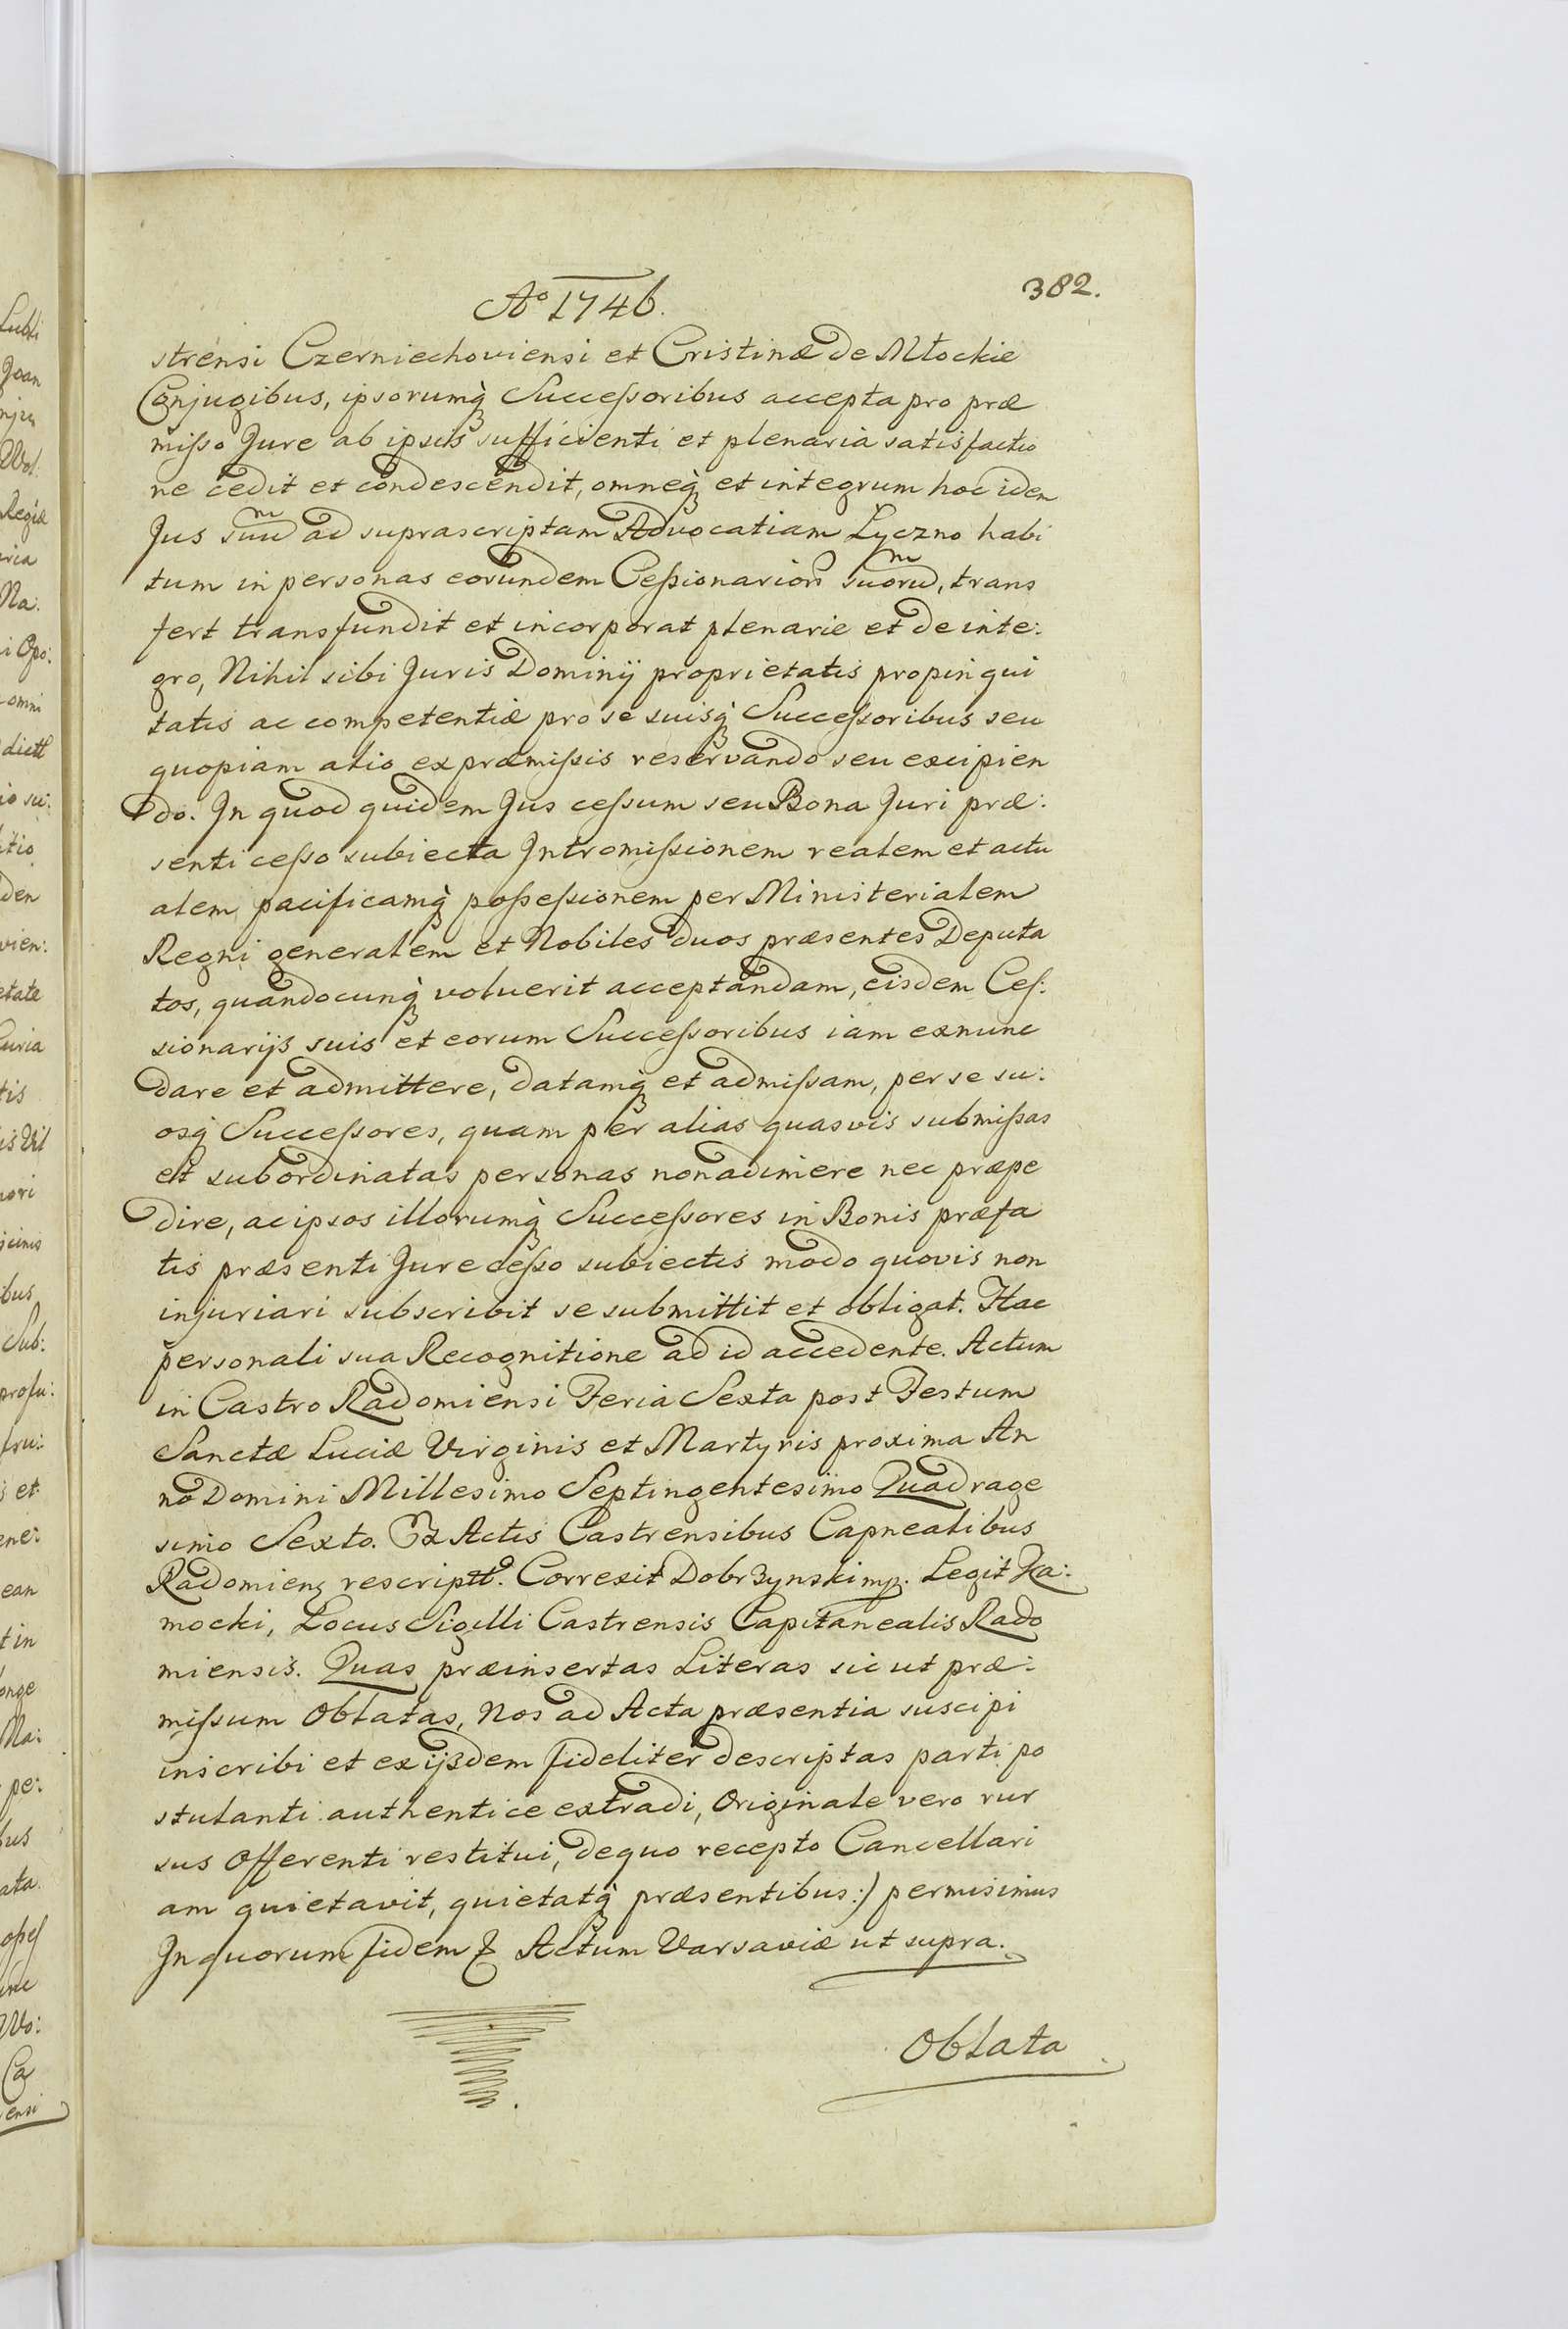 Aº 1746.
382.
strensi Czerniechoviensi et Cristinæ de Młockie
Conjugibus, ipsorumq̀ꝫ Succeſsoribus accepta pro præ
miſso Jure ab ipsis sufficienti et plenaria satisfactio
ne cedit et condescendit, omneq̀ꝫ et integrum hoc idem
Jus suũ ad suprascriptam Advocatiam Lyczno habi
tum in personas eorundem Ceſsionarior̃ suorũ, trans
fert transfundit et incorporat plenarie et de inte:
gro, Nihil sibi Juris Dominij proprietatis propinqui
tatis ac competentiæ pro se suisq̀ꝫ Succeſsoribus seu
quopiam alio ex præmiſsis reservando seu excipien
do. In quod quidem Jus ceſsum seu Bona Juri præ:
senti ceſso subiecta Intromiſsionem realem et actu
alem pacificamq̀ꝫ poſseſsionem per Ministerialem
Regni generalem et Nobiles duos præsentes Deputa
tos, quandocunq̀ꝫ voluerit acceptandam, eisdem Ceſ:
sionarijs suis et eorum Succeſsoribus iam exnunc
dare et admittere, datamq̀ꝫ et admiſsam, per se su:
osq̀ꝫ Succeſsores, quam per alias quasvis submiſsas
et subordinatas personas non adimere nec præpe
dire, ac ipsos illorumq̀ꝫ Succeſsores in Bonis præfa
tis præsenti Jure ceſso subiectis modo quovis non
injuriari subscribit se submittit et obligat. Hac
personali sua Recognitione ad id accedente. Actum
in Castro Radomiensi Feria Sexta post Festum
Sanctæ Luciæ Virginis et Martyris proxima An
no Domini Millesimo Septingentesimo Quadrage
simo Sexto. Ex Actis Castrensibus Capnealibus
Radomienꝫ rescriptt. Correxit Dobrzynski mp. Legit Ka:
mocki, Locus Sigilli Castrensis Capitanealis Rado
miensis. Quas præinsertas Literas sic ut præ:
miſsum Oblatas, Nos ad Acta præsentia suscipi
inscribi et ex ijsdem fideliter descriptas parti po
stulanti authentice extradi, Originale vero rur
sus Offerenti restitui, de quo recepto Cancellari
am quietavit, quietatq̀ꝫ præsentibus:) permisimus
In quorum fidem & Actum Varsaviæ ut supra.
Oblata